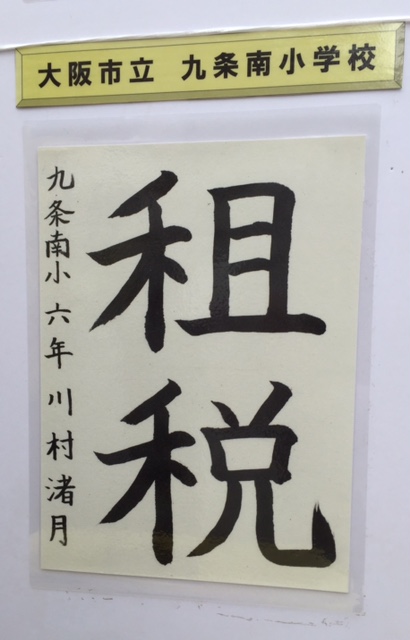 大阪市立 九条南小学校
租税
九条南小 六年 川村渚月